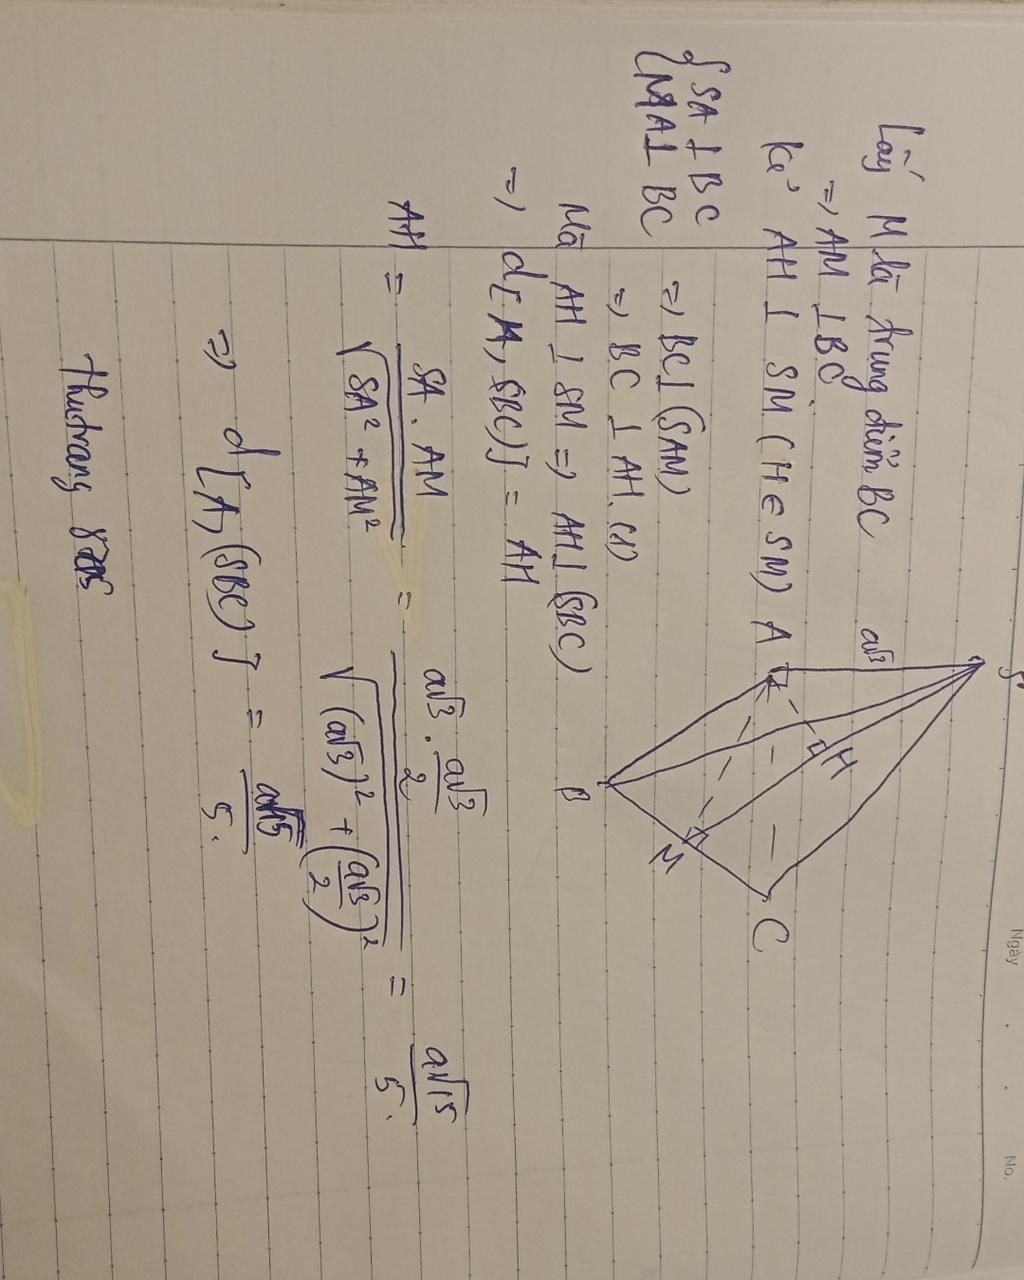 Ngày . . No.
S
a√3
A
H
B
M
C
Lấy M là trung điểm BC
=> AM ⊥ BC
Kẻ AH ⊥ SM (H ∈ SM)
{ SA ⊥ BC
{ MA ⊥ BC
=> BC ⊥ (SAM)
=> BC ⊥ AH (1)
Mà AH ⊥ SM => AH ⊥ (SBC)
=> d[A, (SBC)] = AH
AH = SA . AM / √(SA² + AM²) = a√3 . a√3/2 / √((a√3)² + (a√3/2)²) = a√15/5.
=> d[A, (SBC)] = a√15/5.
thutrang